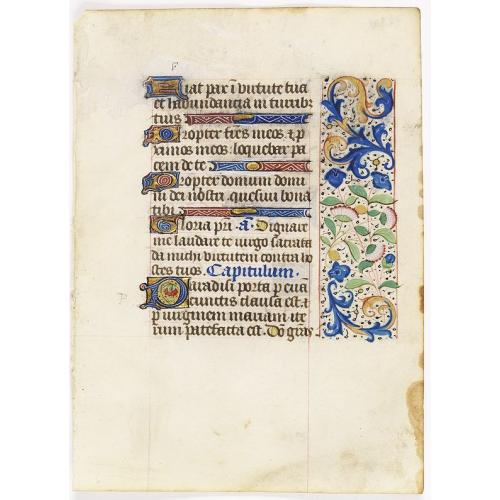 Fiat pax i virtute tua
et habundancia in turrib
tuis
Propter fres meos et p
ximos meos: loquebar pa
cem de te
Propter domum domi
ni dei nostri: quesivi bona
tibi
Gloria pri a. Dignare
me laudare te virgo sacrata
da michi virtutem contra ho
stes tuos. Capitulum.
Paradisi porta p eva
cunctis clausa est: et
p virginem mariam ite
rum patefacta est. Do gras